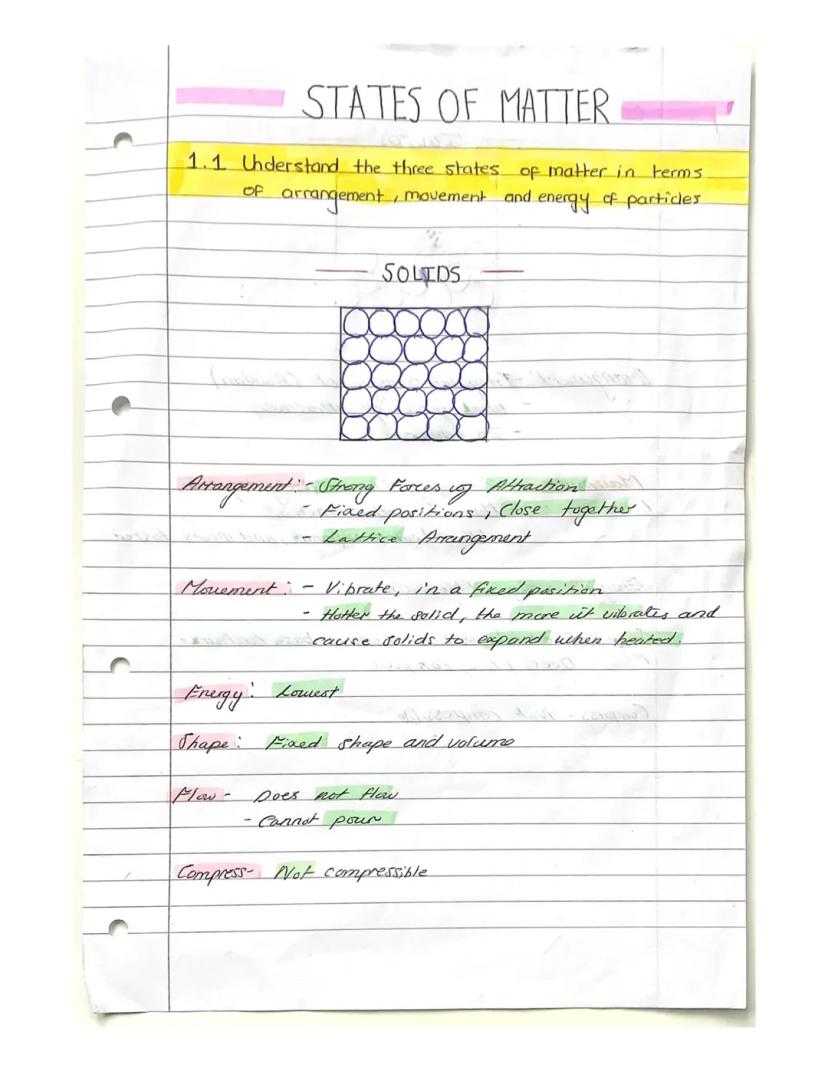 STATES OF MATTER
1.1 Understand the three states of matter in terms
of arrangement, movement and energy of particles
SOLIDS
Arrangement: - Strong Forces of Attraction
- Fixed positions, Close together
- Lattice Arrangement
Movement: - Vibrate, in a fixed position
- Hotter the solid, the more it vibrates and
cause solids to expand when heated.
Energy: Lowest
Shape: Fixed shape and volume
Flow - Does not flow
- Cannot pour
Compress- Not compressible